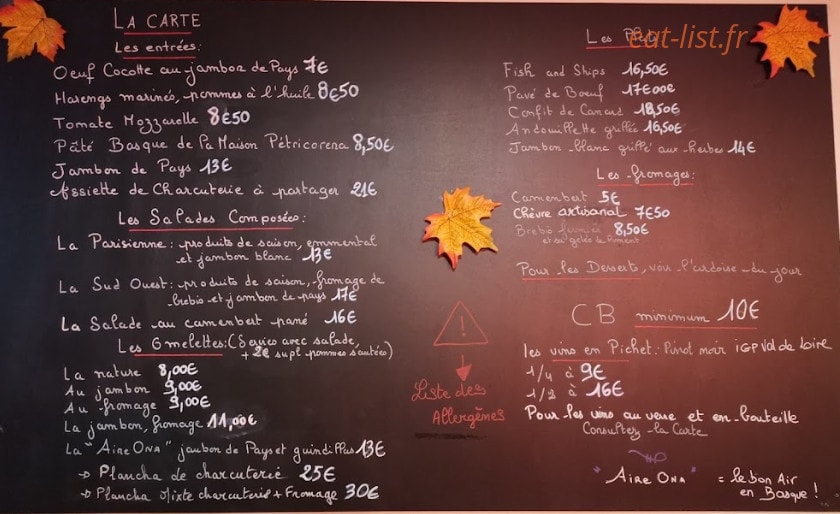 LA CARTE
Les entrées:
Oeuf Cocotte au jambon de Pays 7€
Harengs marinés, pommes à l'huile 8€50
Tomate Mozzarelle 8€50
Pâté Basque de la Maison Pétricorena 8,50€
Jambon de Pays 13€
Assiette de Charcuterie à partager 21€
Les Salades Composées:
La Parisienne: produits de saison, emmental
et jambon blanc 13€
La Sud Ouest: produits de saison, fromage de
brebis et jambon de pays 17€
La Salade au camembert pané 16€
Les Omelettes: (Servies avec salade,
+2€ supl pommes sautées)
La nature 8,00€
Au jambon 9,00€
Au fromage 9,00€
La jambon, fromage 11,00€
La "Aire Ona" jambon de Pays et guindillas 13€
→ Plancha de charcuterie 25€
→ Plancha Mixte charcuterie + Fromage 30€
Liste des
Allergènes
Les Plats
eat-list.fr
Fish and Ships 16,50€
Pavé de Boeuf 17€00€
Confit de Canard 18,50€
Andouillette grillée 16,50€
Jambon blanc grillé aux herbes 14€
Les fromages:
Camembert 5€
Chèvre artisanal 7€50
Brebis 8,50€
et sa gelée de Piment
Pour les Desserts, voir l'ardoise du jour
CB minimum 10€
les vins en Pichet: Pinot noir IGP Val de Loire
1/4 à 9€
1/2 à 16€
Pour les vins au verre et en bouteille
Consultez la Carte
"Aire Ona" = le bon Air
en Basque !